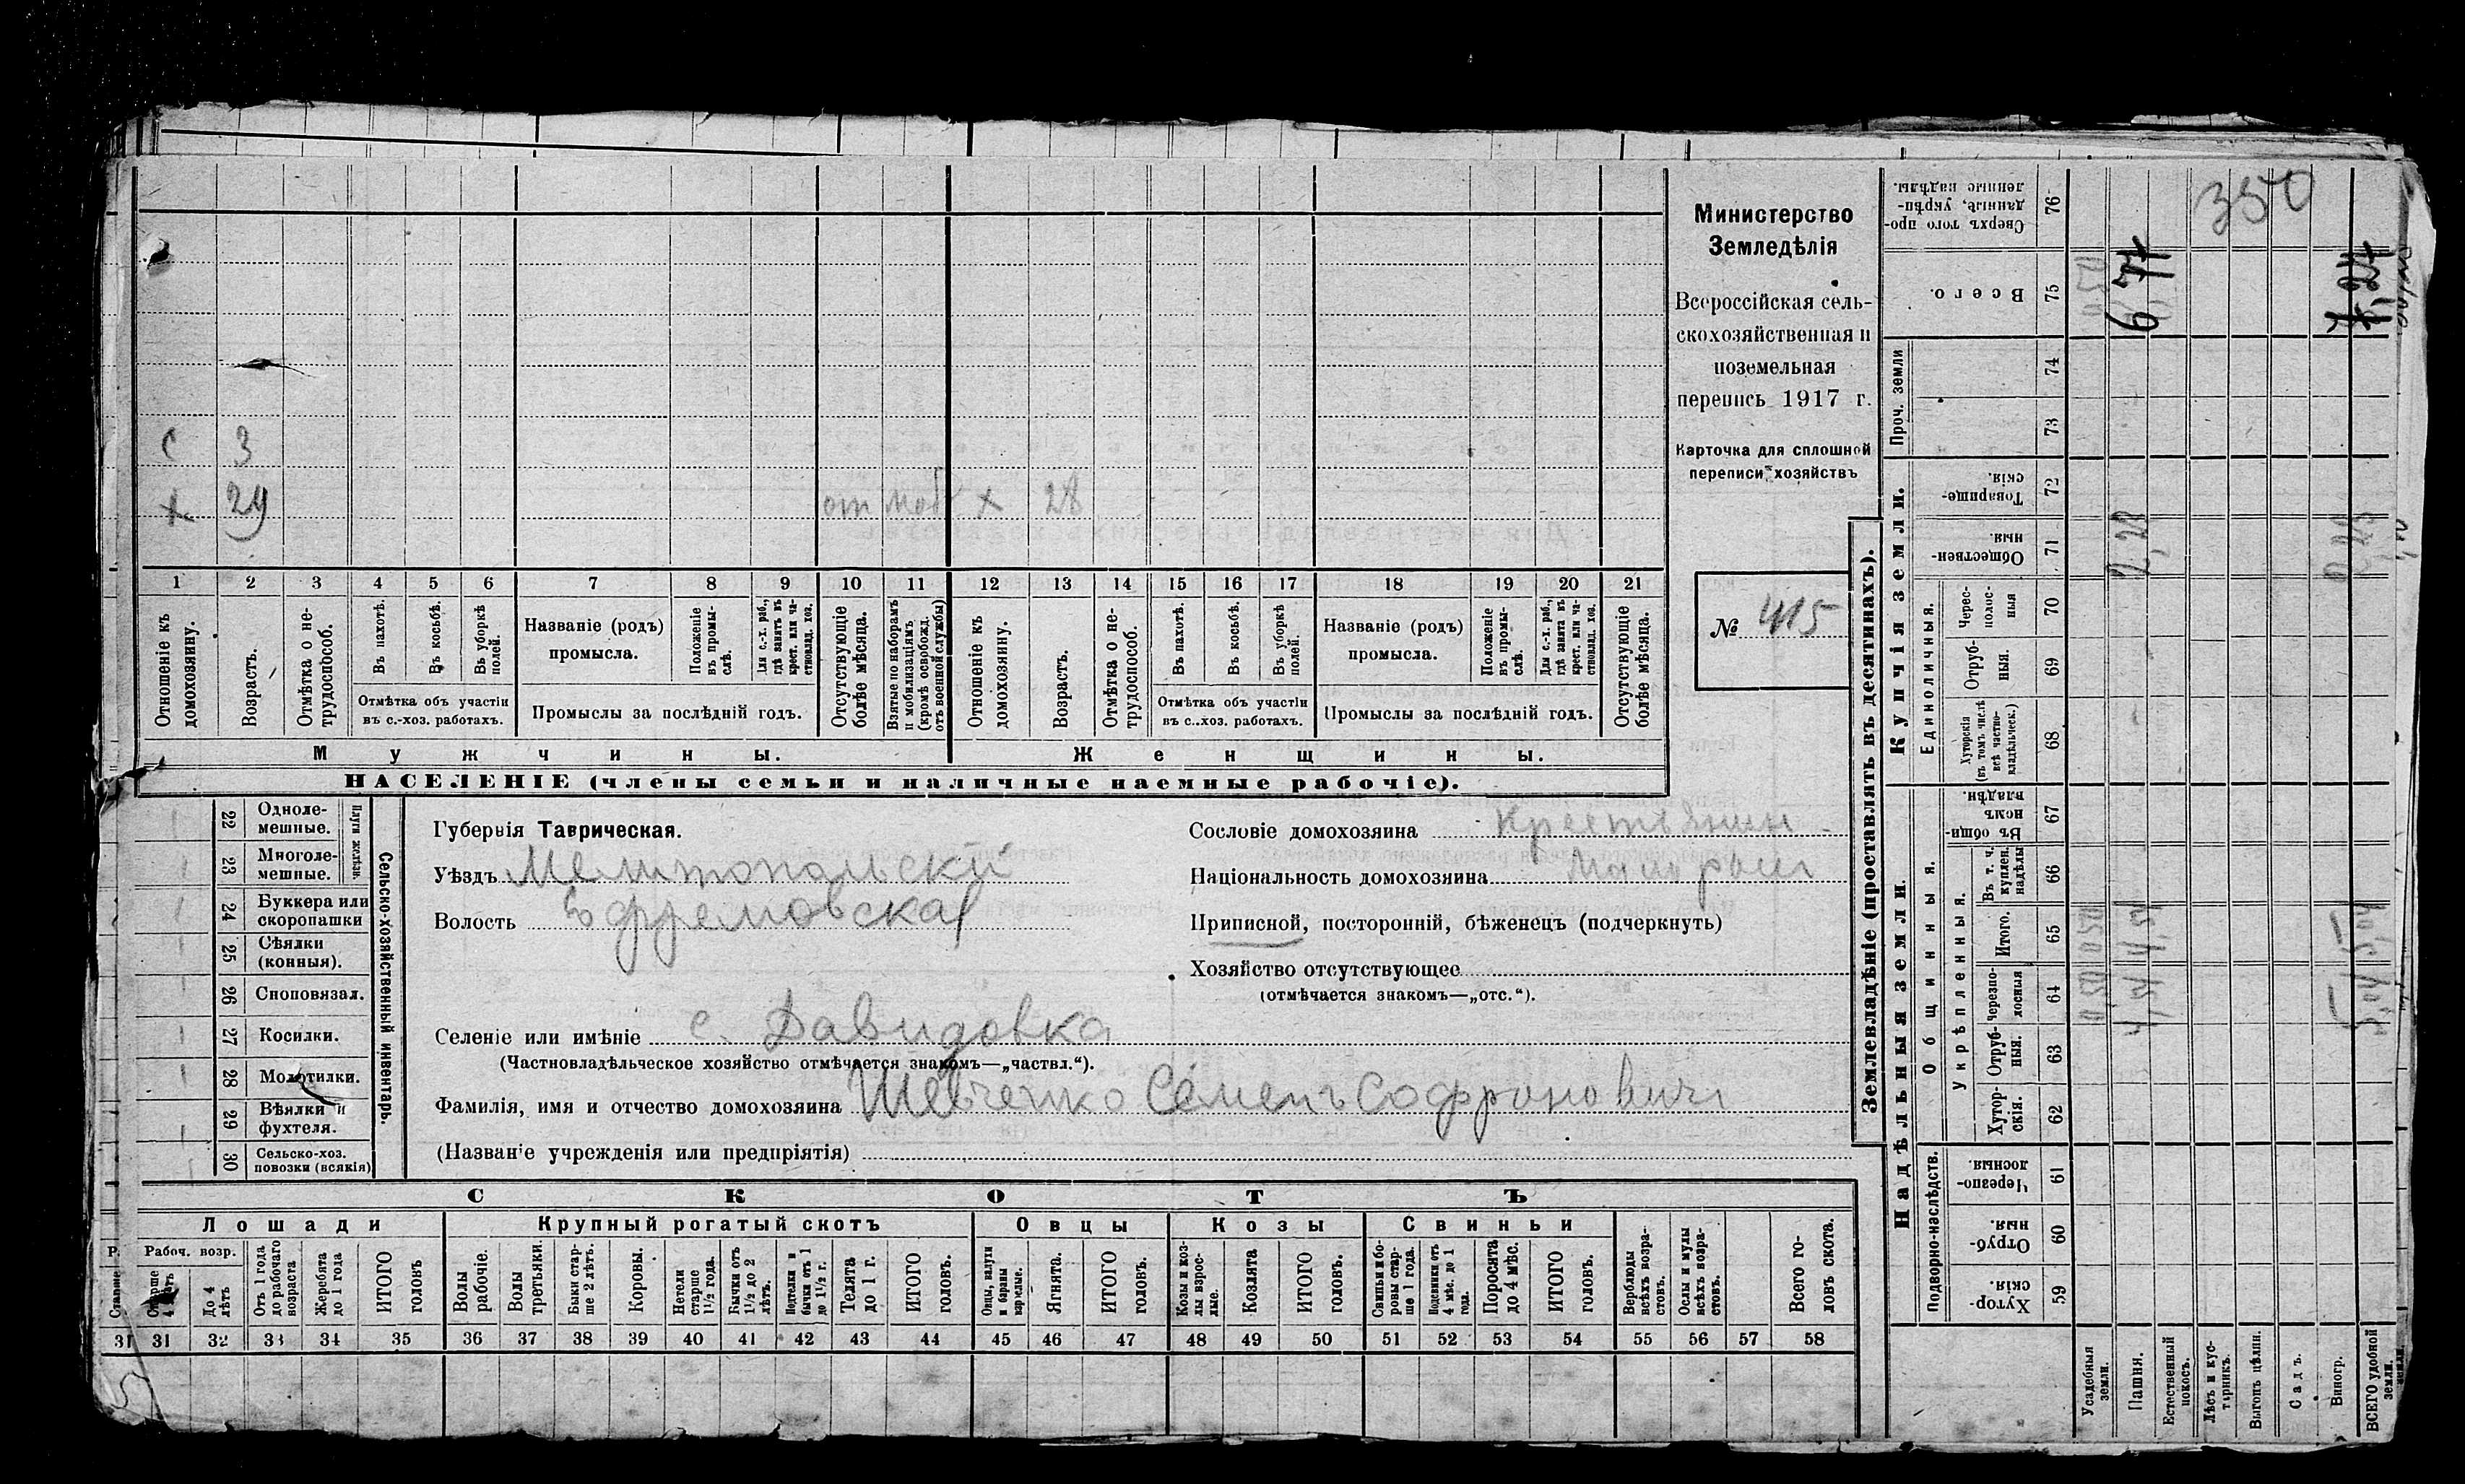 Министерство
Земледѣлія
Всероссійская сель-
скохозяйственная и
поземельная
перепись 1917 г.
Карточка для сплошной
переписи хозяйствъ
№ 415
с 3
х 29 от моб х 28
1 2 3 4 5 6 7 8 9 10 11 12 13 14 15 16 17 18 19 20 21
Отношеніе къ домохозяину.
Возрастъ.
Отмѣтка о не-трудоспособ.
Въ пахотѣ.
Въ косьбѣ.
Въ уборкѣ полей.
Отмѣтка объ участіи
въ с.-хоз. работахъ.
Названіе (родъ)
промысла.
Положеніе въ промы-слѣ.
Для с.-х. раб., гдѣ занятъ въ крест. или ча-стновлад. хоз.
Промыслы за послѣдній годъ.
Отсутствующіе болѣе мѣсяца.
Взятые по наборамъ и мобилизаціямъ (кромѣ освобожд. отъ военной службы)
Отношеніе къ домохозяину.
Возрастъ.
Отмѣтка о не-трудоспособ.
Въ пахотѣ.
Въ косьбѣ.
Въ уборкѣ полей.
Отмѣтка объ участіи
въ с..хоз. работахъ.
Названіе (родъ)
промысла.
Положеніе въ промы-слѣ.
Для с.-х. раб., гдѣ занята въ крест. или ча-стновлад. хоз.
Промыслы за послѣдній годъ.
Отсутствующіе болѣе мѣсяца.
Мужчины. Женщины.
НАСЕЛЕНІЕ (члены семьи и наличные наемные рабочіе).
Сельско-хозяйственный инвентарь.
Плуги желѣзн.
22 Одноле-мешные.
23 Многоле-мешные.
24 Буккера или скоропашки
25 Сѣялки (конныя).
26 Сноповязал.
27 Косилки.
28 Молотилки.
29 Вѣялки и фухтеля.
30 Сельско-хоз. повозки (всякія)
Губернія Таврическая.
Уѣздъ Мелитопольскій
Волость Ефремовская
Сословіе домохозяина Крестьянин
Національность домохозяина Малоросс
Приписной, посторонній, бѣженецъ (подчеркнуть)
Хозяйство отсутствующее
(отмѣчается знакомъ—„отс.“).
Селеніе или имѣніе с. Давидовка
(Частновладѣльческое хозяйство отмѣчается знакомъ—„частвл.“).
Фамилія, имя и отчество домохозяина Шевченко Семенъ Софронович
(Названіе учрежденія или предпріятія)
СКОТЪ
Лошади Крупный рогатый скотъ Овцы Козы Свиньи
Рабоч. возр.
Старше 4 лѣтъ
До 4 лѣтъ
Отъ 1 года до рабочаго возраста
Жеребята до 1 года
ИТОГО головъ
Волы рабочіе.
Волы третьяки.
Быки стар-ше 2 лѣтъ.
Коровы.
Нетели старше 1½ года.
Бычки отъ 1½ до 2 лѣтъ.
Подтелки и бычки отъ 1 до 1½ г.
Телята до 1 г.
ИТОГО головъ.
Овцы, валухи и бараны взрослые.
Ягнята.
ИТОГО головъ.
Козы и коз-лы взрос-лые.
Козлята
ИТОГО головъ.
Свиньи и бо-ровы стар-ше 1 года.
Подсвинки отъ 4 мѣс. до 1 года.
Поросята до 4 мѣс.
ИТОГО головъ.
Верблюды всѣхъ возра-стовъ.
Ослы и мулы всѣхъ возра-стовъ.
Всего го-ловъ скота.
31 31 32 33 34 35 36 37 38 39 40 41 42 43 44 45 46 47 48 49 50 51 52 53 54 55 56 57 58
Землевладѣніе (проставлять въ десятинахъ).
Надѣльныя земли.
Подворно-наслѣдств.
Хутор-скія 59
Отруб-ныя. 60
Черезпо-лосныя. 61
Общинныя.
Укрѣпленныя.
Хутор-скія. 62
Отруб-ныя. 63
Черезпо-лосныя 64
Итого. 65
Въ т. ч. куплен. надѣлы 66
Въ общи-номъ владѣн. 67
Купчія земли.
Единоличныя.
Хуторскія (въ томъ числѣ всѣ частно-владѣльческ.) 68
Отруб-ныя. 69
Черес-полос-ныя 70
Обществен-ныя. 71
Товарище-скія 72
Проч. земли
73 74
Всего. 75
Сверхъ того про-данные, укрѣп-ленные надѣлы. 76
Усадебныя земли. 0,50 0,50
Пашня. 4,54 4,54 2,28 6,77
Естественный покосъ.
Лѣсъ и кус-тарникъ.
Выгонъ цѣлин.
Садъ.
Виногр.
ВСЕГО удобной земли. 5,04 5,04
350